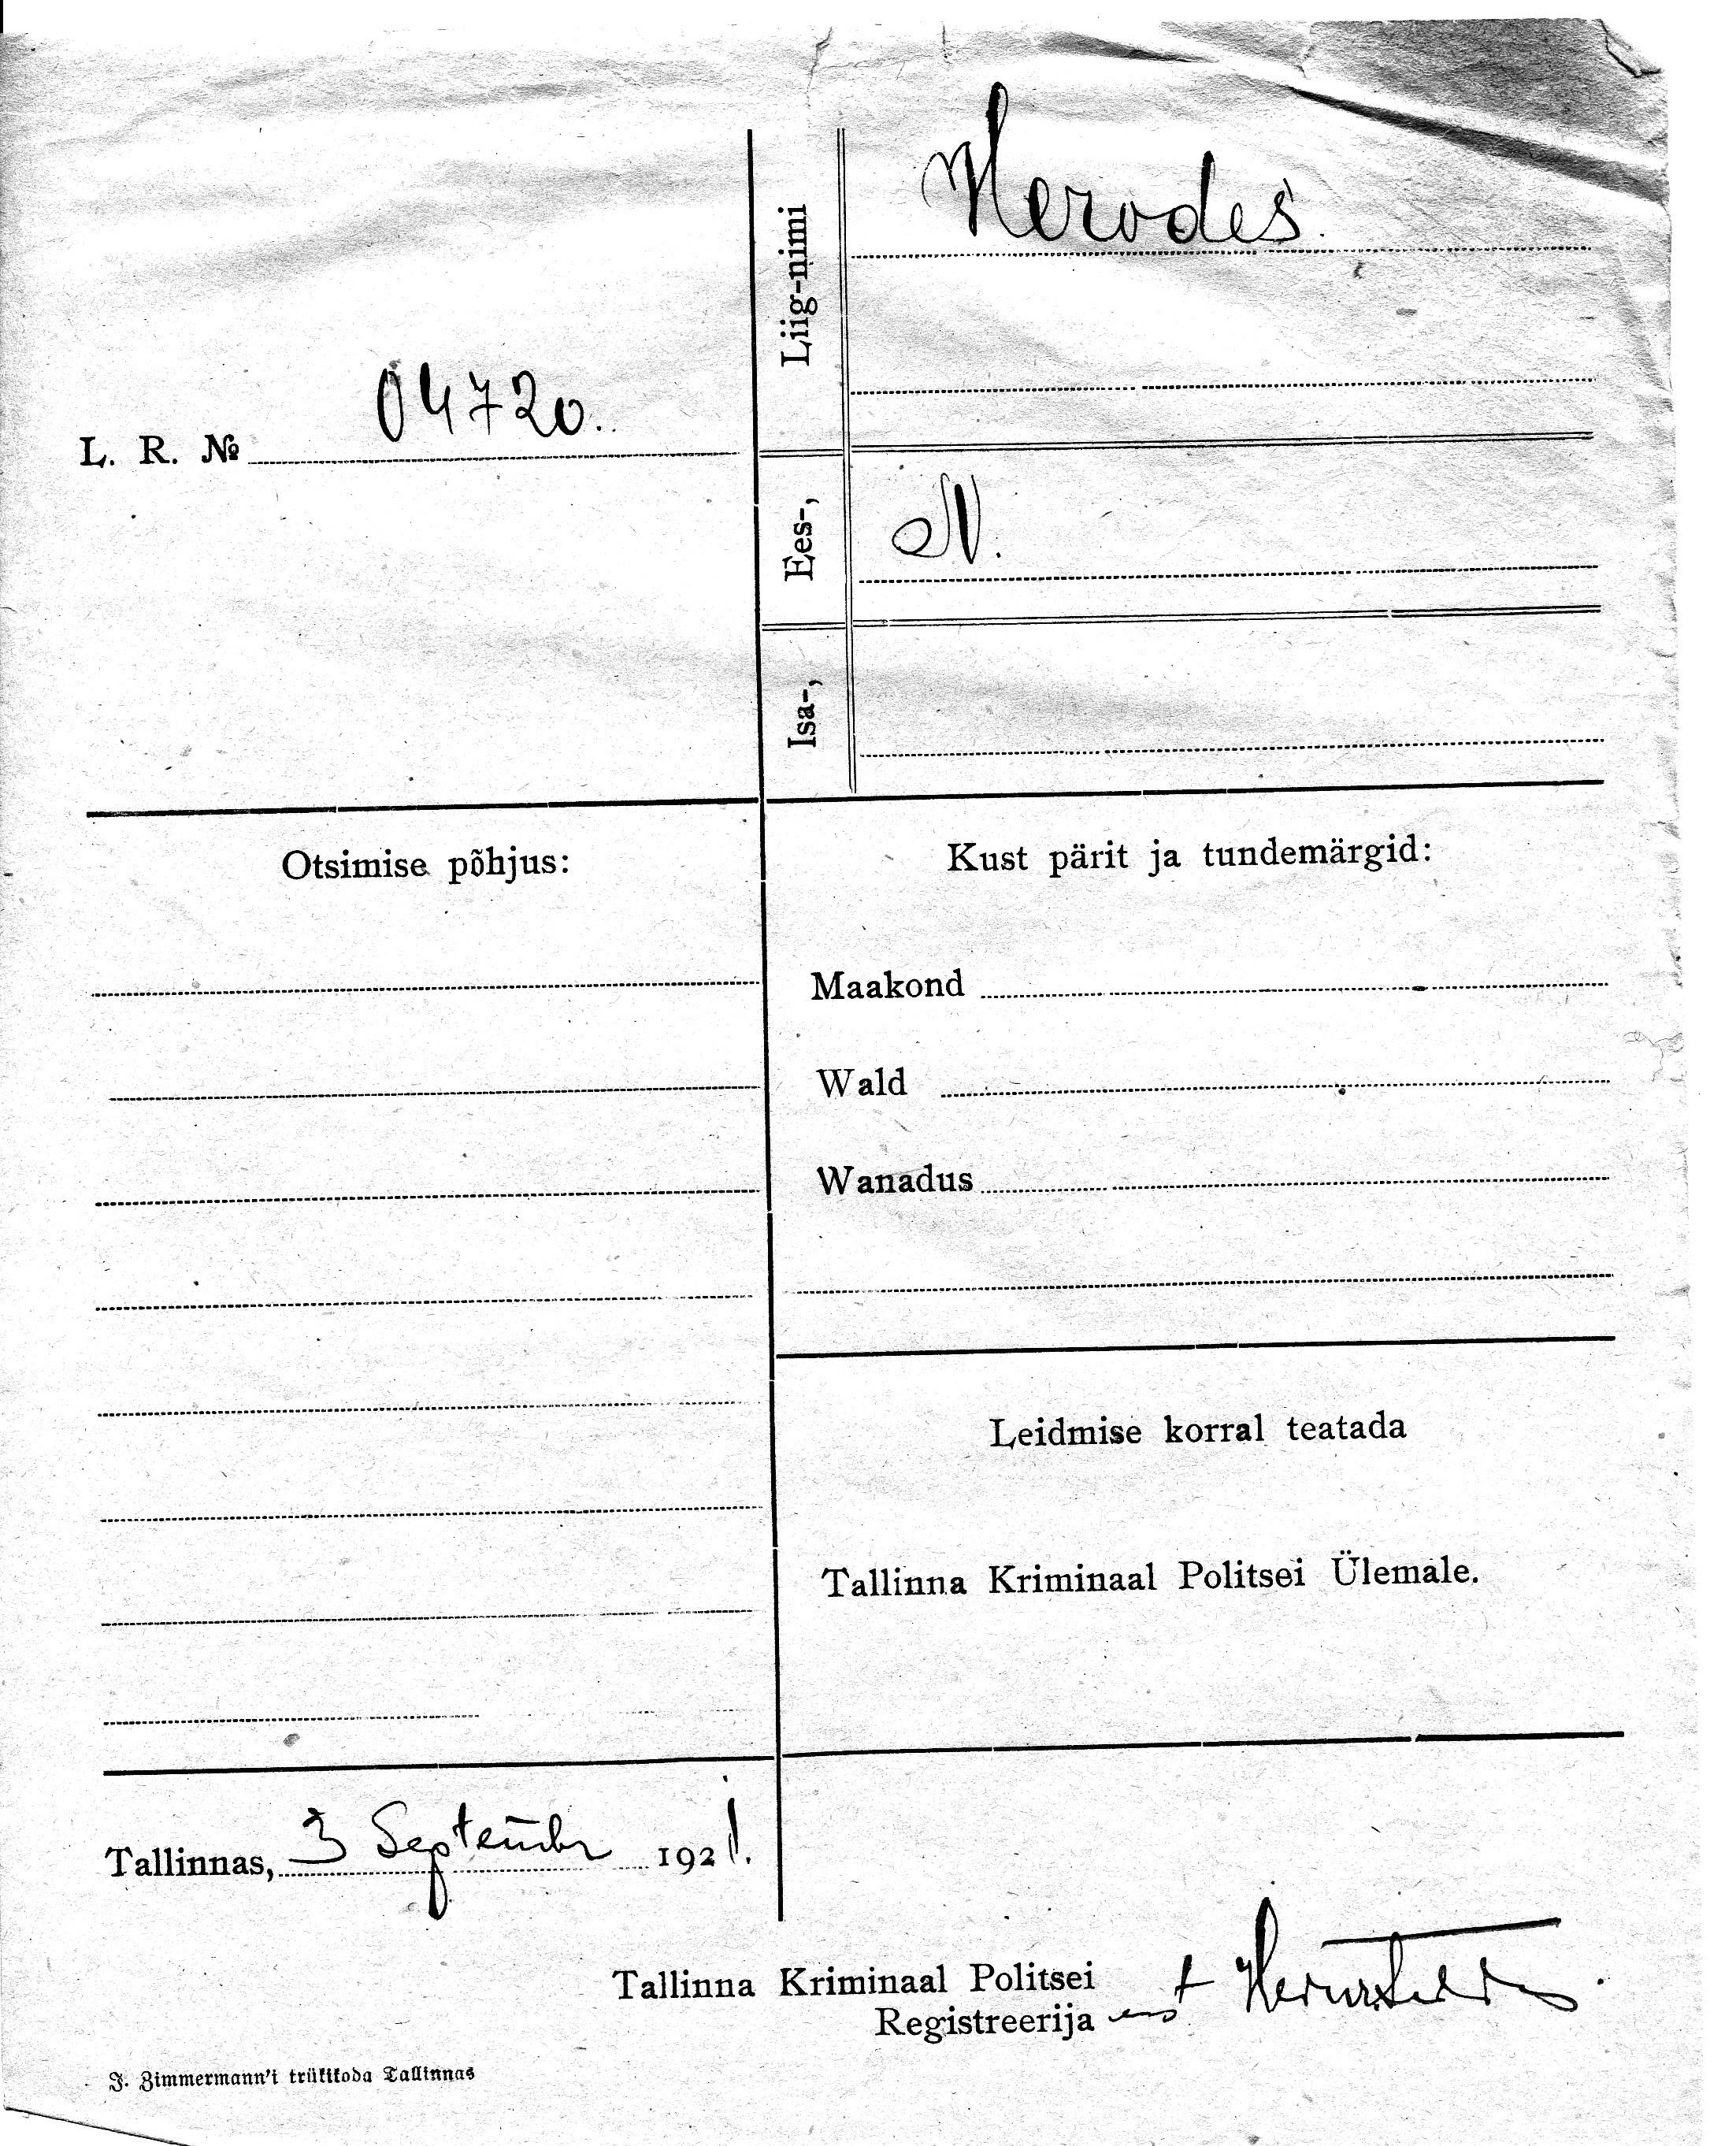 Liig-nimi Herodes.
L. R. № 04720.
Ees-, N.
Isa-,
Otsimise põhjus:
Kust pärit ja tundemärgid:
Maakond
Wald
Wanadus
Leidmise korral teatada
Tallinna Kriminaal Politsei Ülemale.
Tallinnas, 3 Septembr 1921.
Tallinna Kriminaal Politsei
Registreerija
J. Zimmermann'i trükikoda Tallinnas